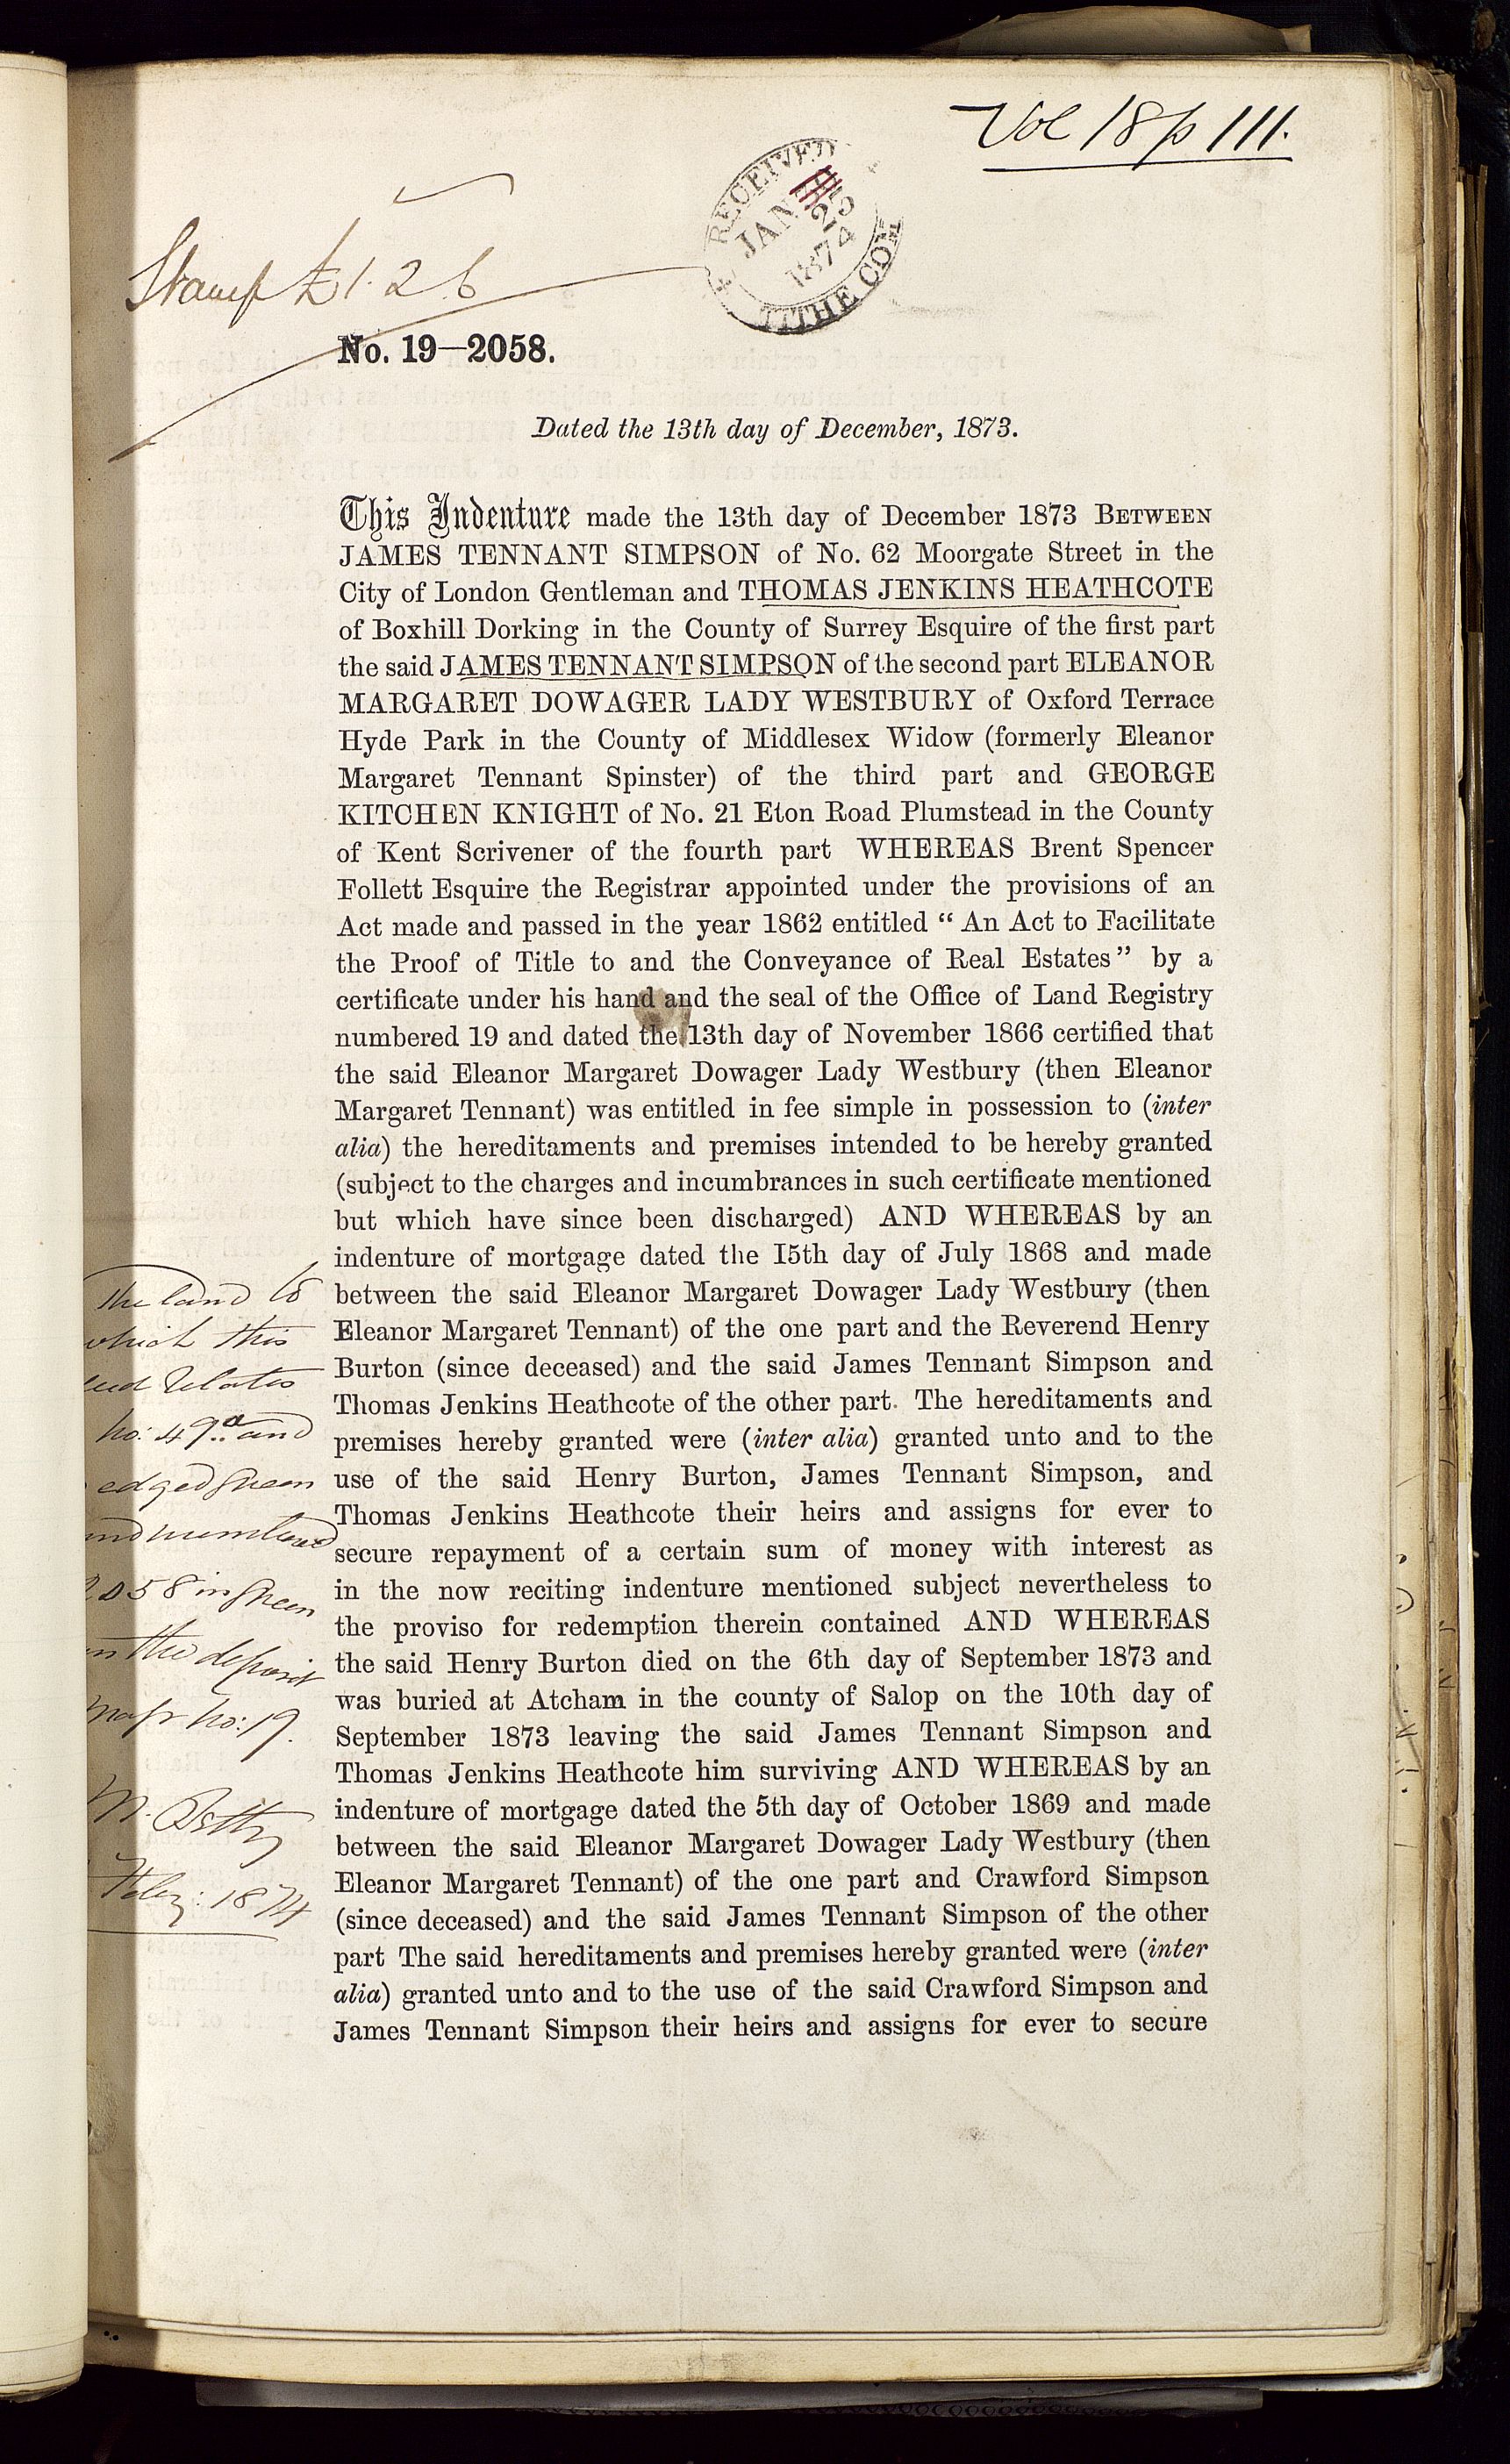 Vol 18 p 111.
RECEIVED
JAN 23
1874
TITHE COM
Stamp £1. 2 6
No. 19—2058.
Dated the 13th day of December, 1873.
This Indenture made the 13th day of December 1873 BETWEEN
JAMES TENNANT SIMPSON of No. 62 Moorgate Street in the
City of London Gentleman and THOMAS JENKINS HEATHCOTE
of Boxhill Dorking in the County of Surrey Esquire of the first part
the said JAMES TENNANT SIMPSON of the second part ELEANOR
MARGARET DOWAGER LADY WESTBURY of Oxford Terrace
Hyde Park in the County of Middlesex Widow (formerly Eleanor
Margaret Tennant Spinster) of the third part and GEORGE
KITCHEN KNIGHT of No. 21 Eton Road Plumstead in the County
of Kent Scrivener of the fourth part WHEREAS Brent Spencer
Follett Esquire the Registrar appointed under the provisions of an
Act made and passed in the year 1862 entitled “ An Act to Facilitate
the Proof of Title to and the Conveyance of Real Estates” by a
certificate under his hand and the seal of the Office of Land Registry
numbered 19 and dated the 13th day of November 1866 certified that
the said Eleanor Margaret Dowager Lady Westbury (then Eleanor
Margaret Tennant) was entitled in fee simple in possession to (inter
alia) the hereditaments and premises intended to be hereby granted
(subject to the charges and incumbrances in such certificate mentioned
but which have since been discharged) AND WHEREAS by an
indenture of mortgage dated the 15th day of July 1868 and made
between the said Eleanor Margaret Dowager Lady Westbury (then
Eleanor Margaret Tennant) of the one part and the Reverend Henry
Burton (since deceased) and the said James Tennant Simpson and
Thomas Jenkins Heathcote of the other part. The hereditaments and
premises hereby granted were (inter alia) granted unto and to the
use of the said Henry Burton, James Tennant Simpson, and
Thomas Jenkins Heathcote their heirs and assigns for ever to
secure repayment of a certain sum of money with interest as
in the now reciting indenture mentioned subject nevertheless to
the proviso for redemption therein contained AND WHEREAS
the said Henry Burton died on the 6th day of September 1873 and
was buried at Atcham in the county of Salop on the 10th day of
September 1873 leaving the said James Tennant Simpson and
Thomas Jenkins Heathcote him surviving AND WHEREAS by an
indenture of mortgage dated the 5th day of October 1869 and made
between the said Eleanor Margaret Dowager Lady Westbury (then
Eleanor Margaret Tennant) of the one part and Crawford Simpson
(since deceased) and the said James Tennant Simpson of the other
part The said hereditaments and premises hereby granted were (inter
alia) granted unto and to the use of the said Crawford Simpson and
James Tennant Simpson their heirs and assigns for ever to secure
The land to
which this
relates
no: 49a and
edged green
and numbered
2058 in green
on the deposit
map no: 19.
Feby: 1874